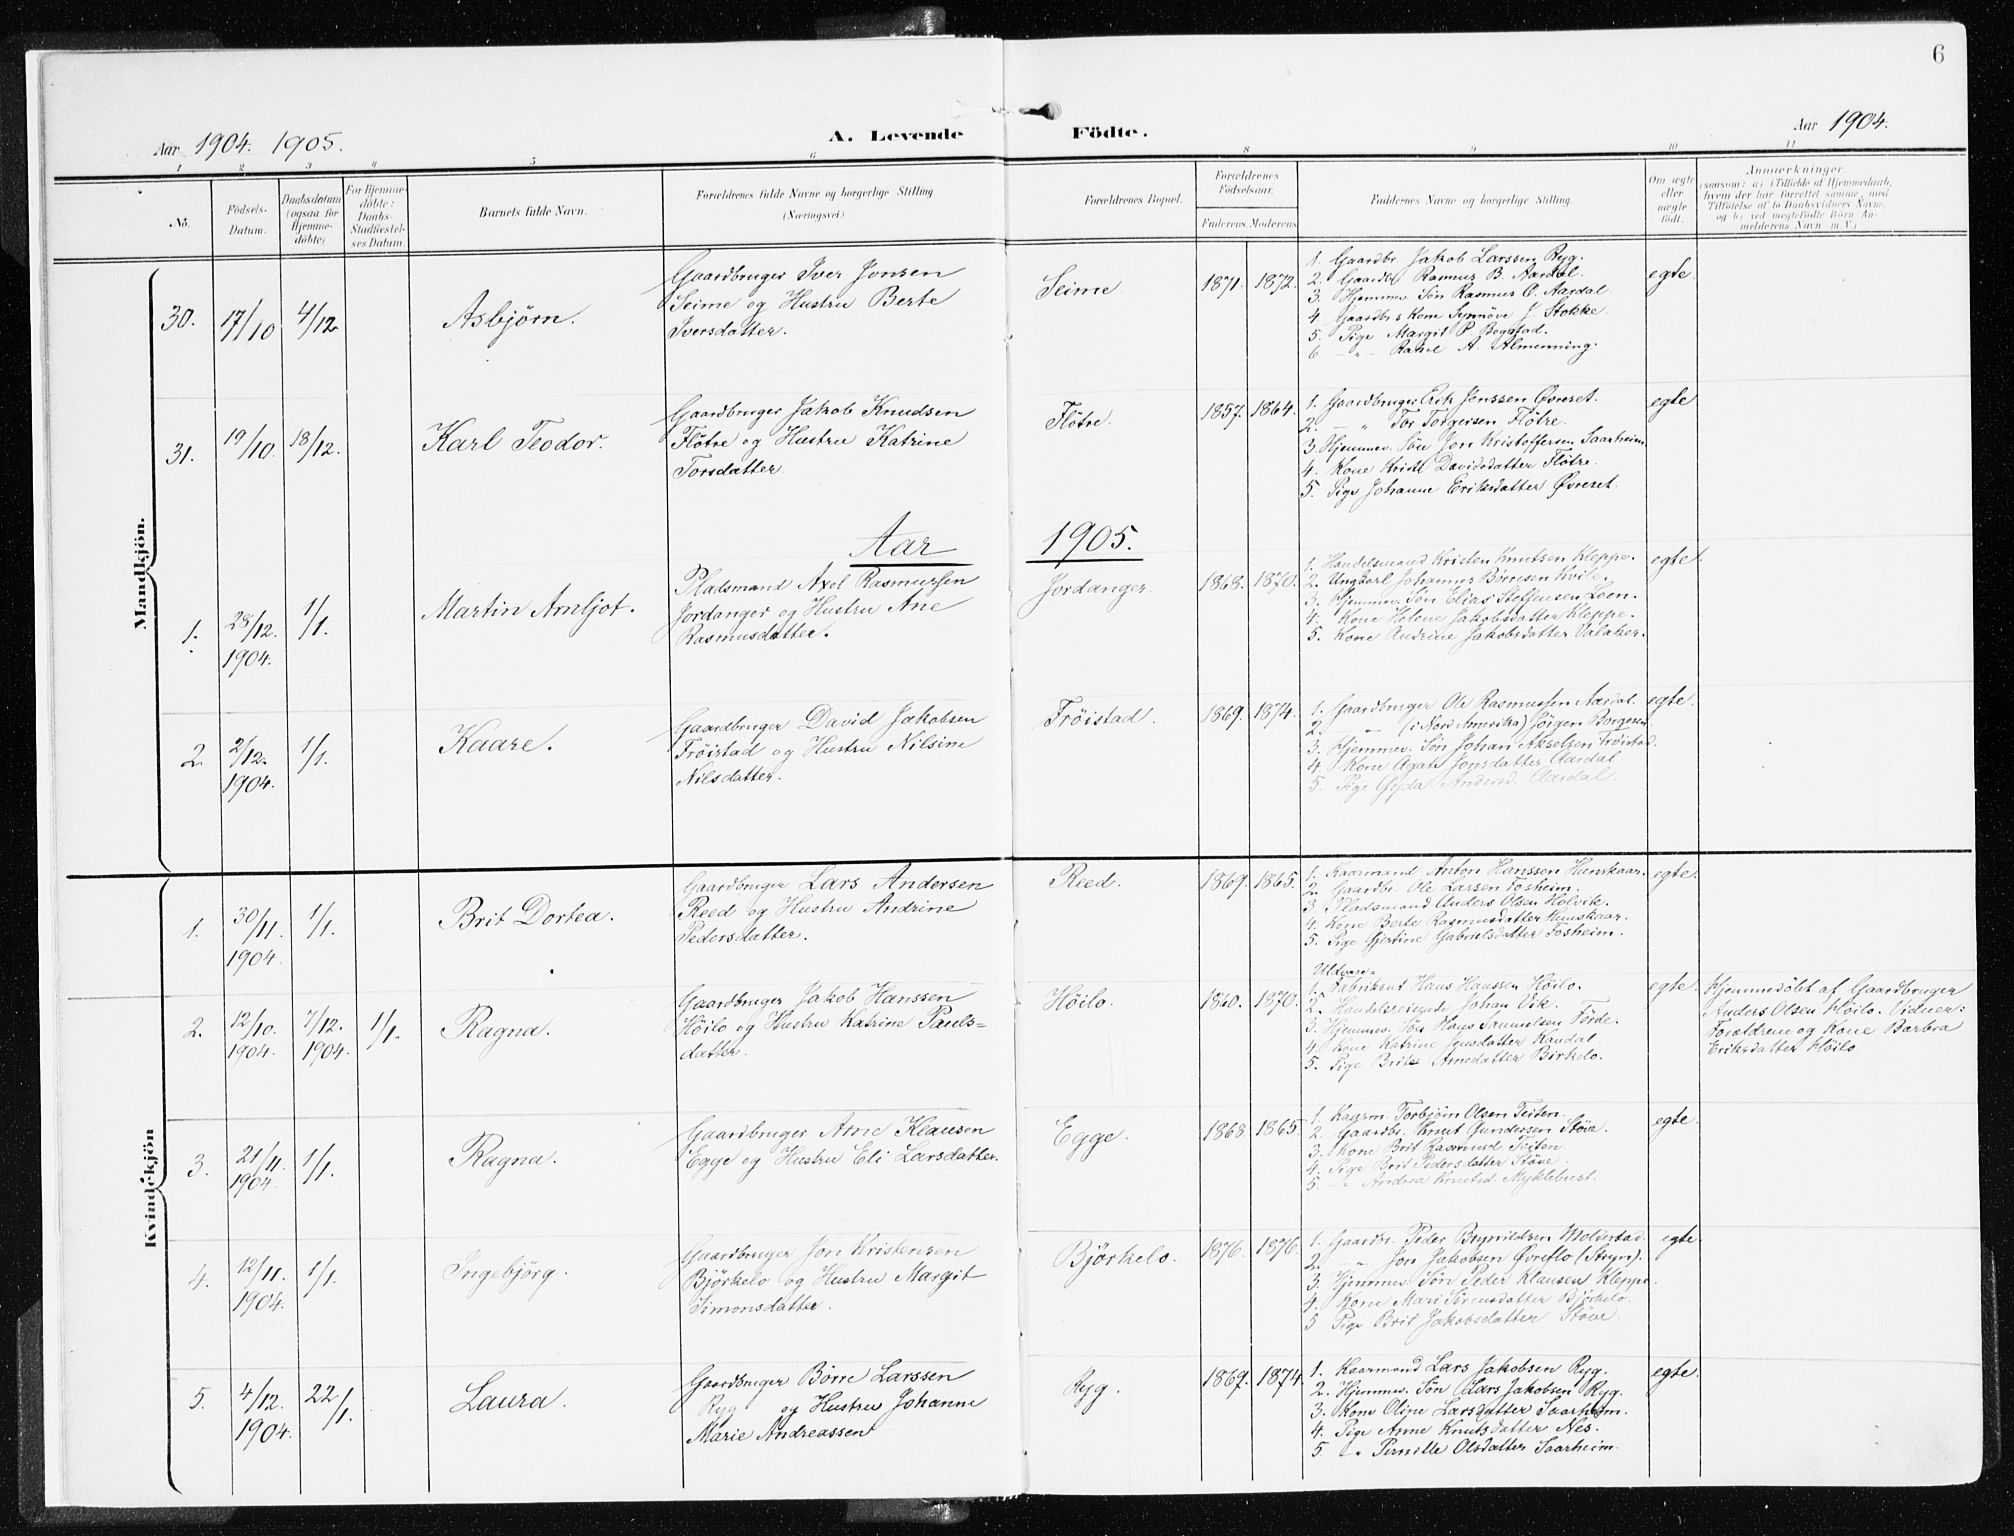 6
Aar 1904. 1905.
A. Levende Födte.
Aar 1904.
1 2 3 4 5 6 8 9 10 11
No.
Födsels-Datum.
Daabsdatum (ogsaa for Hjemmedöbte)
For Hjemmedöbte: Daabs-Stadfæstelses Datum.
Barnets fulde Navn.
Forældrenes fulde Navne og borgerlige Stilling
(Næringsvei.)
Forældrenes Bopæl.
Forældrenes Födselsaar.
Faderens. Moderens.
Faddernes Navne og borgerlige Stilling.
Om ægte eller uægte födt.
Anmerkninger
(saasom: a) i Tilfælde af Hjemmedaab, hvem der har forrettet samme, med Tilföielse af to Daabsvidners Navne, og b) ved uægtefödte Börn Anmelderens Navn m. V.)
Mandkjön.
30. 17/10 4/12 Asbjørn.
Gaardbruger Iver Jonsen
Seime og Hustru Berte
Iversdatter.
Seime. 1871. 1872.
1. Gaardbr. Jakob Larssen Ryg.
2. Gaardbr Rasmus B. Aardal.
3. Hjemmev. Søn Rasmus O. Aardal.
4 Gaardbr s Kone Synnöve J. Stokke.
5. Pige Margit P. Bogstad.
6 — " — Rakel A. Almenning.
egte
31. 19/10 18/12. Karl Teodor.
Gaardbruger Jakob Knudsen
Fløtre og Hustru Katrine
Torsdatter
Fløtre. 1857. 1864.
1. Gaardbruger Erik Jenssen Øvreset.
2. — " Tor Torgersen Fløtre.
3. Hjemmev. Søn Jon Kristoffersen Saarheim
4. Kone Kristi Davidsdatter Fløtre.
5. Pige Johanne Eriksdatter Øvreset.
egte
Aar 1905.
1. 28/12. 1904. 1/1. Martin Arnljot.
Pladsmand Axel Rasmussen
Jordanger og Hustru Ane
Rasmusdatter.
Jordanger. 1868. 1870.
1. Handelsmand Kristen Knutsen Kleppe.
2. Ungkarl Johannes Børresen Kvile.
3. Hjemmev. Søn Elias Steffensen Loen.
4. Kone Helene Jakobsdatter Kleppe.
5. Kone Andrine Jakobsdatter Valaker.
egte.
2. 2/12. 1904. 1/1. Kaare.
Gaardbruger David Jakobsen
Frøistad og Hustru Nilsine
Nilsdatter.
Frøistad. 1869. 1874.
1. Gaardbruger Ole Rasmussen Aardal.
2 — " (i Nord Amerika) Jörgen Borgersen
3. Hjemmev. Søn Johan Akselsen Frøistad.
4. Kone Agate Jonsdatter Aardal
5. Pige Gyda Andersd. Aardal.
egte.
Kvindekjön
1. 30/11. 1904. 1/1. Brit Dortea.
Gaardbruger Lars Andersen
Reed og Hustru Andrine
Pedersdatter.
Reed. 1869. 1865.
1. Kaarmand Anton Hanssen Hunskaar.
2. Gaardbr. Ole Larsen Fosheim.
3. Pladsmand Anders Olsen Holvik.
4. Kone Berte Rasmusdatter Hunskaar.
5. Pige Gjertine Gabrielsdatter Fosheim.
egte.
2. 12/10. 1904. 7/12. 1904. 1/1. Ragna.
Gaardbruger Jakob Hanssen
Höilo og Hustru Katrine Pauls-
datter.
Höilo. 1860. 1870.
Uldvare-
1. Fabrikant Hans Hanssen Höilo.
2. Handelsreisende Johan Vik.
3. Hjemmev. Søn Hans Samuelsen Förde.
4. Kone Katrine Jensdatter Kandal.
5. Pige Brite Arnedatter Birkelo.
egte.
Hjemmedöbt af Gaardbruger
Anders Olsen Höilo. Vidner:
Forældrene og Kone Barbra
Eriksdatter Höilo.
3. 21/11. 1904. 1/1. Ragna.
Gaardbruger Arne Klausen
Egge og Hustru Eli Larsdatter.
Egge. 1868. 1865.
1. Kaarm. Torbjørn Olsen Teiten.
2. Gaardbr. Knut Gundersen Støve.
3. Kone Brit Rasmusd Teiten.
4. Pige Brit Pedersdatter Støve
5. — " Andrea Knutsd. Myklebust.
egte.
4. 12/11. 1904. 1/1. Ingebjörg.
Gaardbruger Jon Kristensen
Bjørkelo og Hustru Margit
Simonsdatter.
Bjørkelo. 1876. 1876.
1. Gaardbr. Peder Brynildsen Moldestad.
2. " Jon Jakobsen Øvreflo (Stryn).
3. Hjemmev. Søn Peder Klausen Kleppe.
4. Kone Mari Sørensdatter Bjørkelo.
5. Pige Brit Jakobsdatter Støve.
egte
5. 4/12. 1904. 22/1. Laura.
Gaardbruger Børre Larssen
Ryg og Hustru Johanne
Marie Andreassen
Ryg. 1869. 1874.
1. Kaarmand Lars Jakobsen Ryg.
2. Hjemmev. Søn Lars Jakobsen Ryg.
3. Kone Oline Larsdatter Saarheim.
4. Pige Anne Knutsdatter Nes.
5 " Pernille Olsdatter Saarheim.
egte.